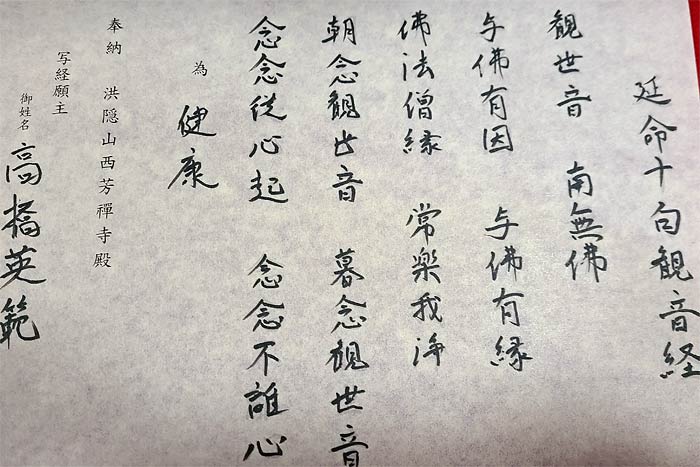 延命十句観音経
観世音 南無佛
与佛有因 与佛有縁
佛法僧縁 常楽我浄
朝念観世音 暮念観世音
念念従心起 念念不離心
為 健康
奉納 洪隠山西芳禅寺殿
写経願主
御姓名 高橋英範